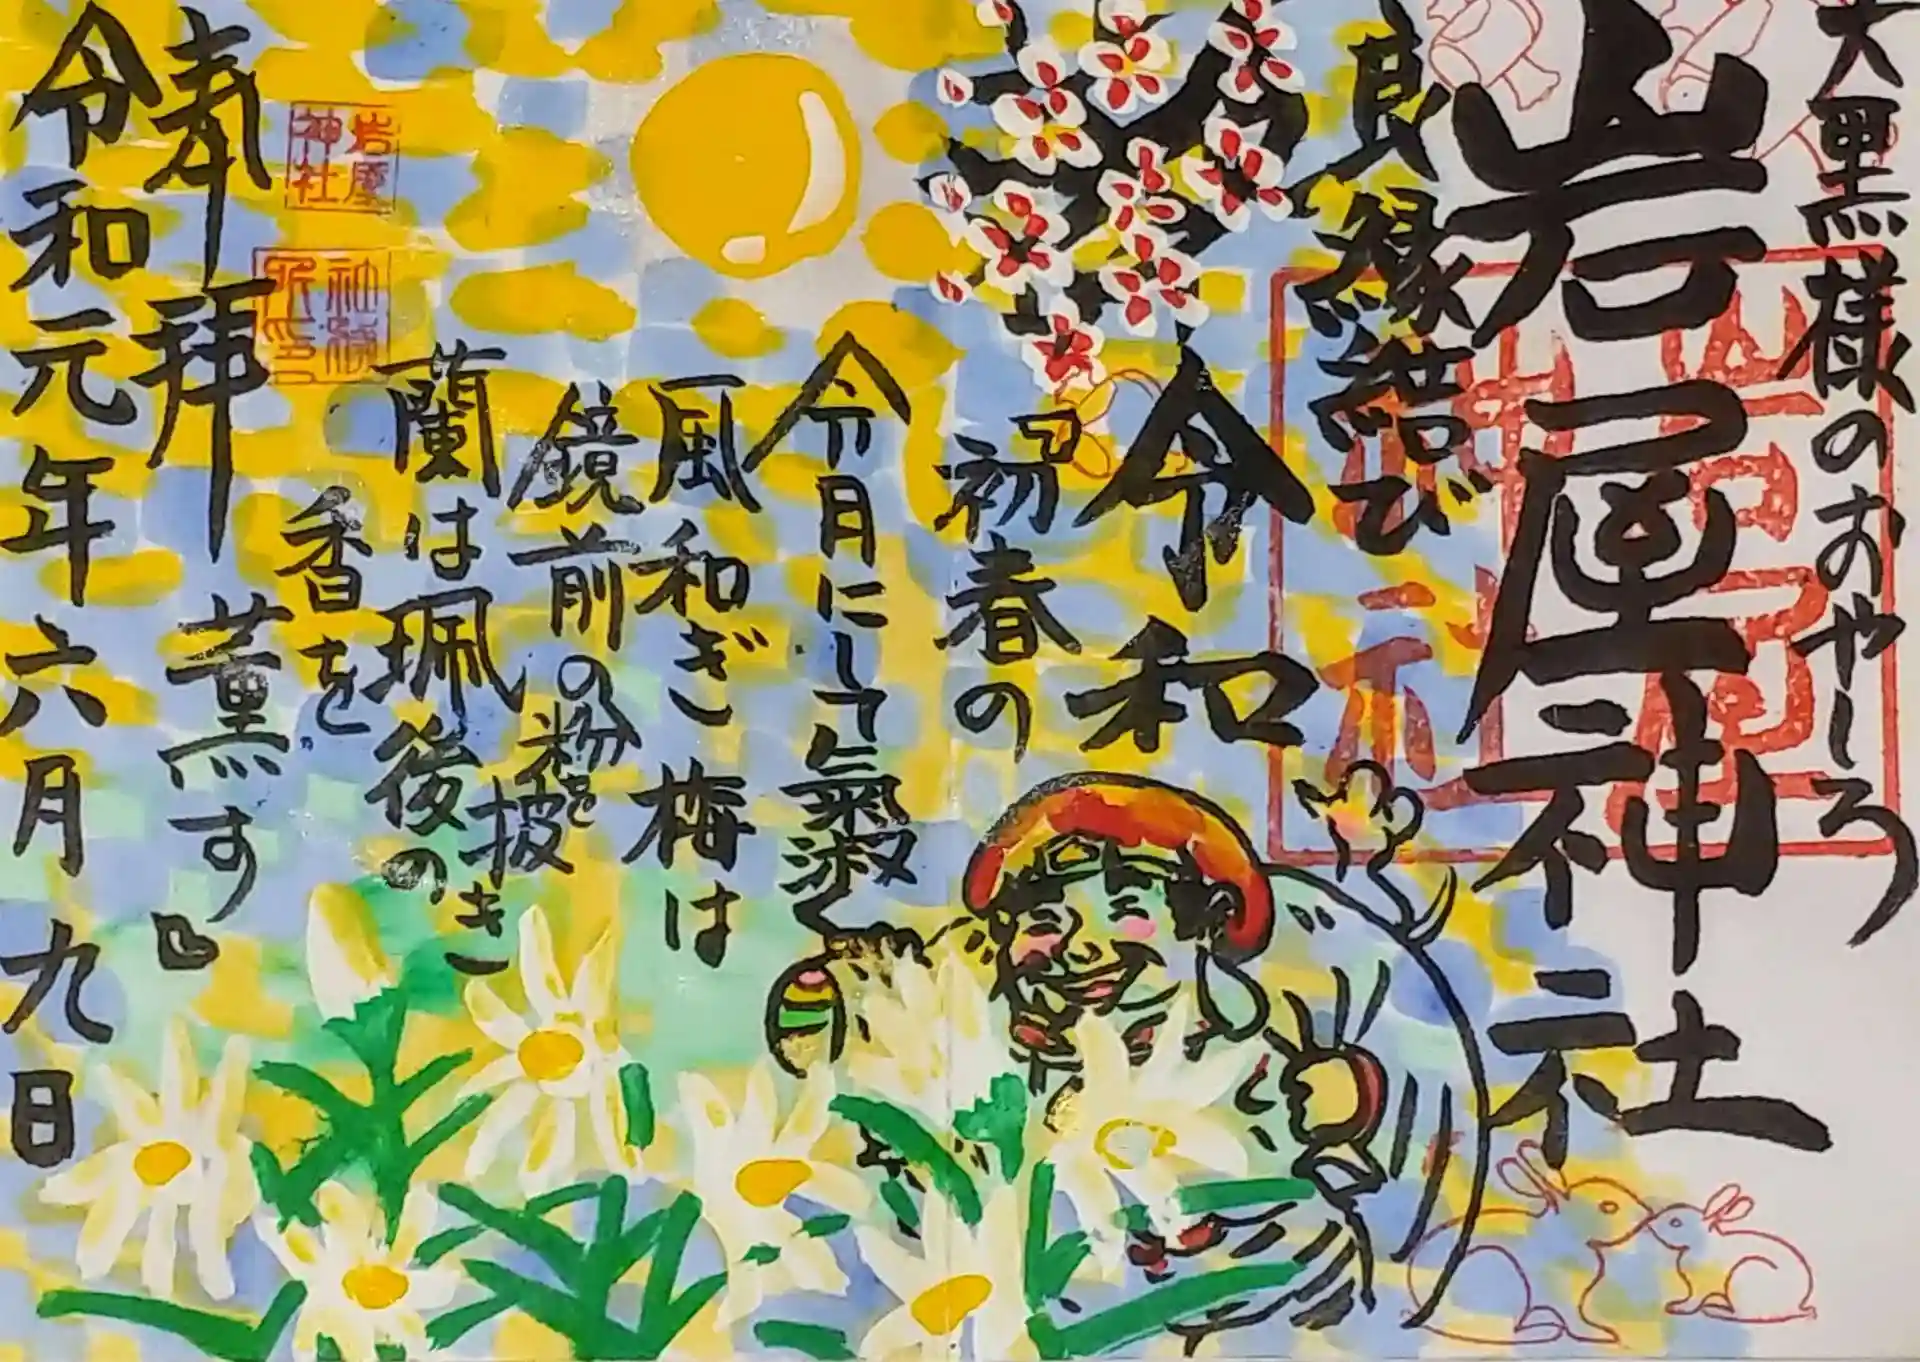 大黒様のおやしろ
岩屋神社
良縁結び
令和
『初春の
令月にして氣淑く
風和ぎ 梅は
鏡前の粉を
披き
蘭は珮後の
香を
薫す』
奉拝
令和元年六月九日
岩屋
神社
岩屋
神社